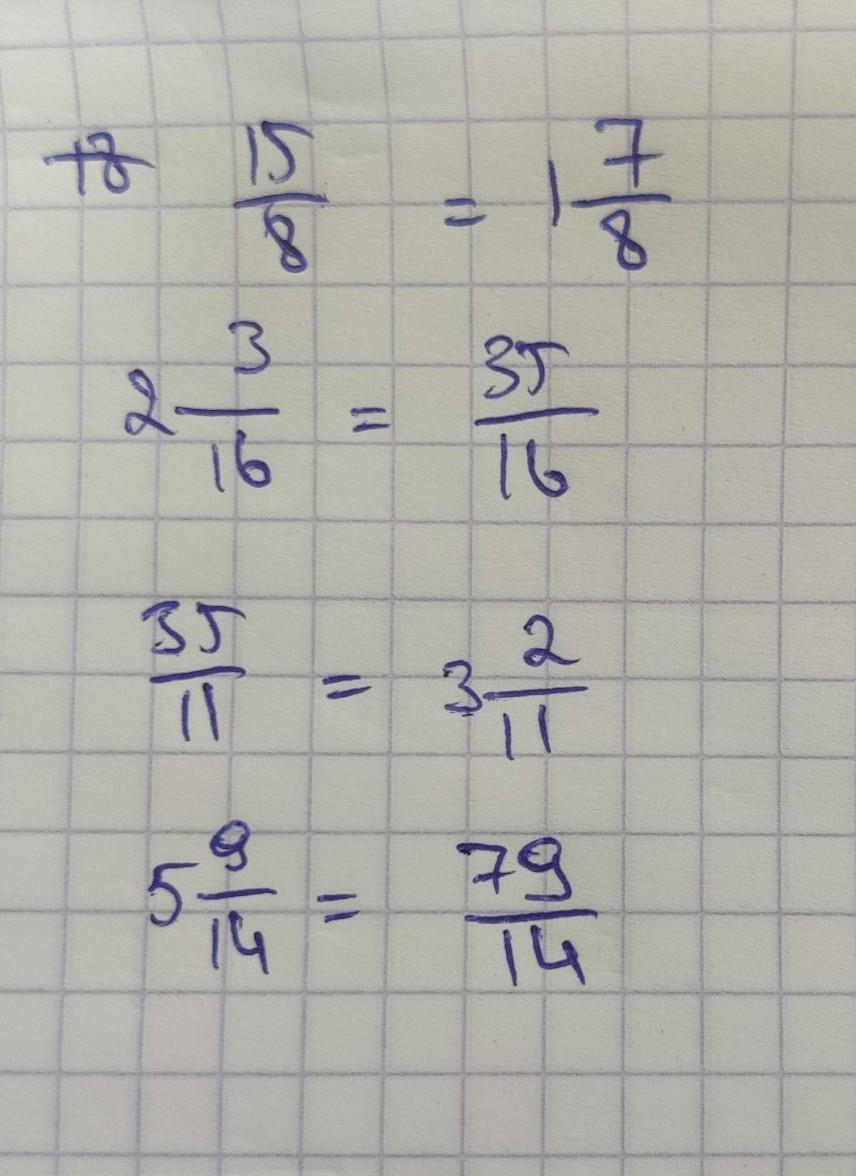 ~~18~~ 15/8 = 1 7/8
2 3/16 = 35/16
35/11 = 3 2/11
5 9/14 = 79/14